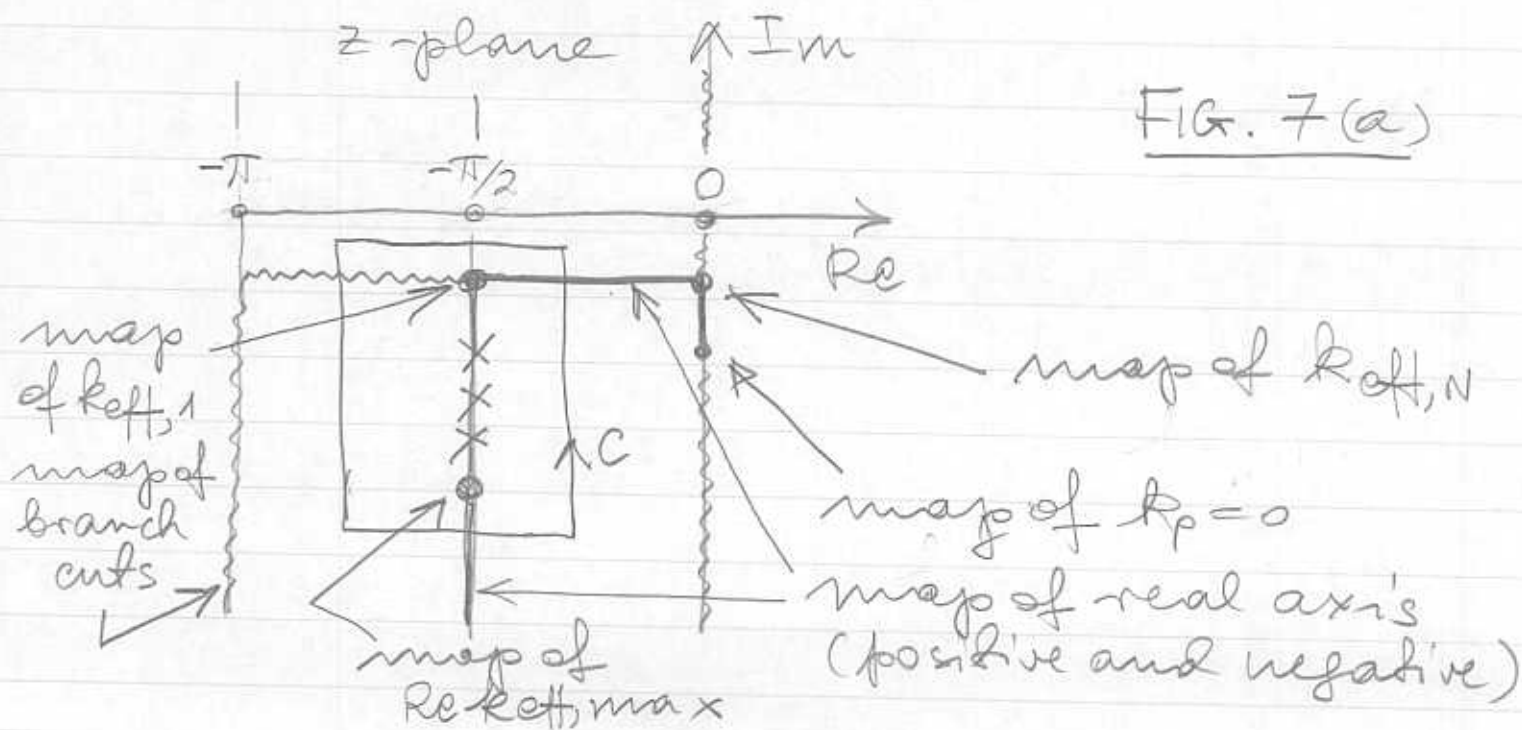 z-plane
Im
FIG. 7(a)
-π
-π/2
0
Re
map
of keff,1
map of
branch
cuts
C
map of keff,N
map of kρ=0
map of real axis
(positive and negative)
map of
Re keff,max